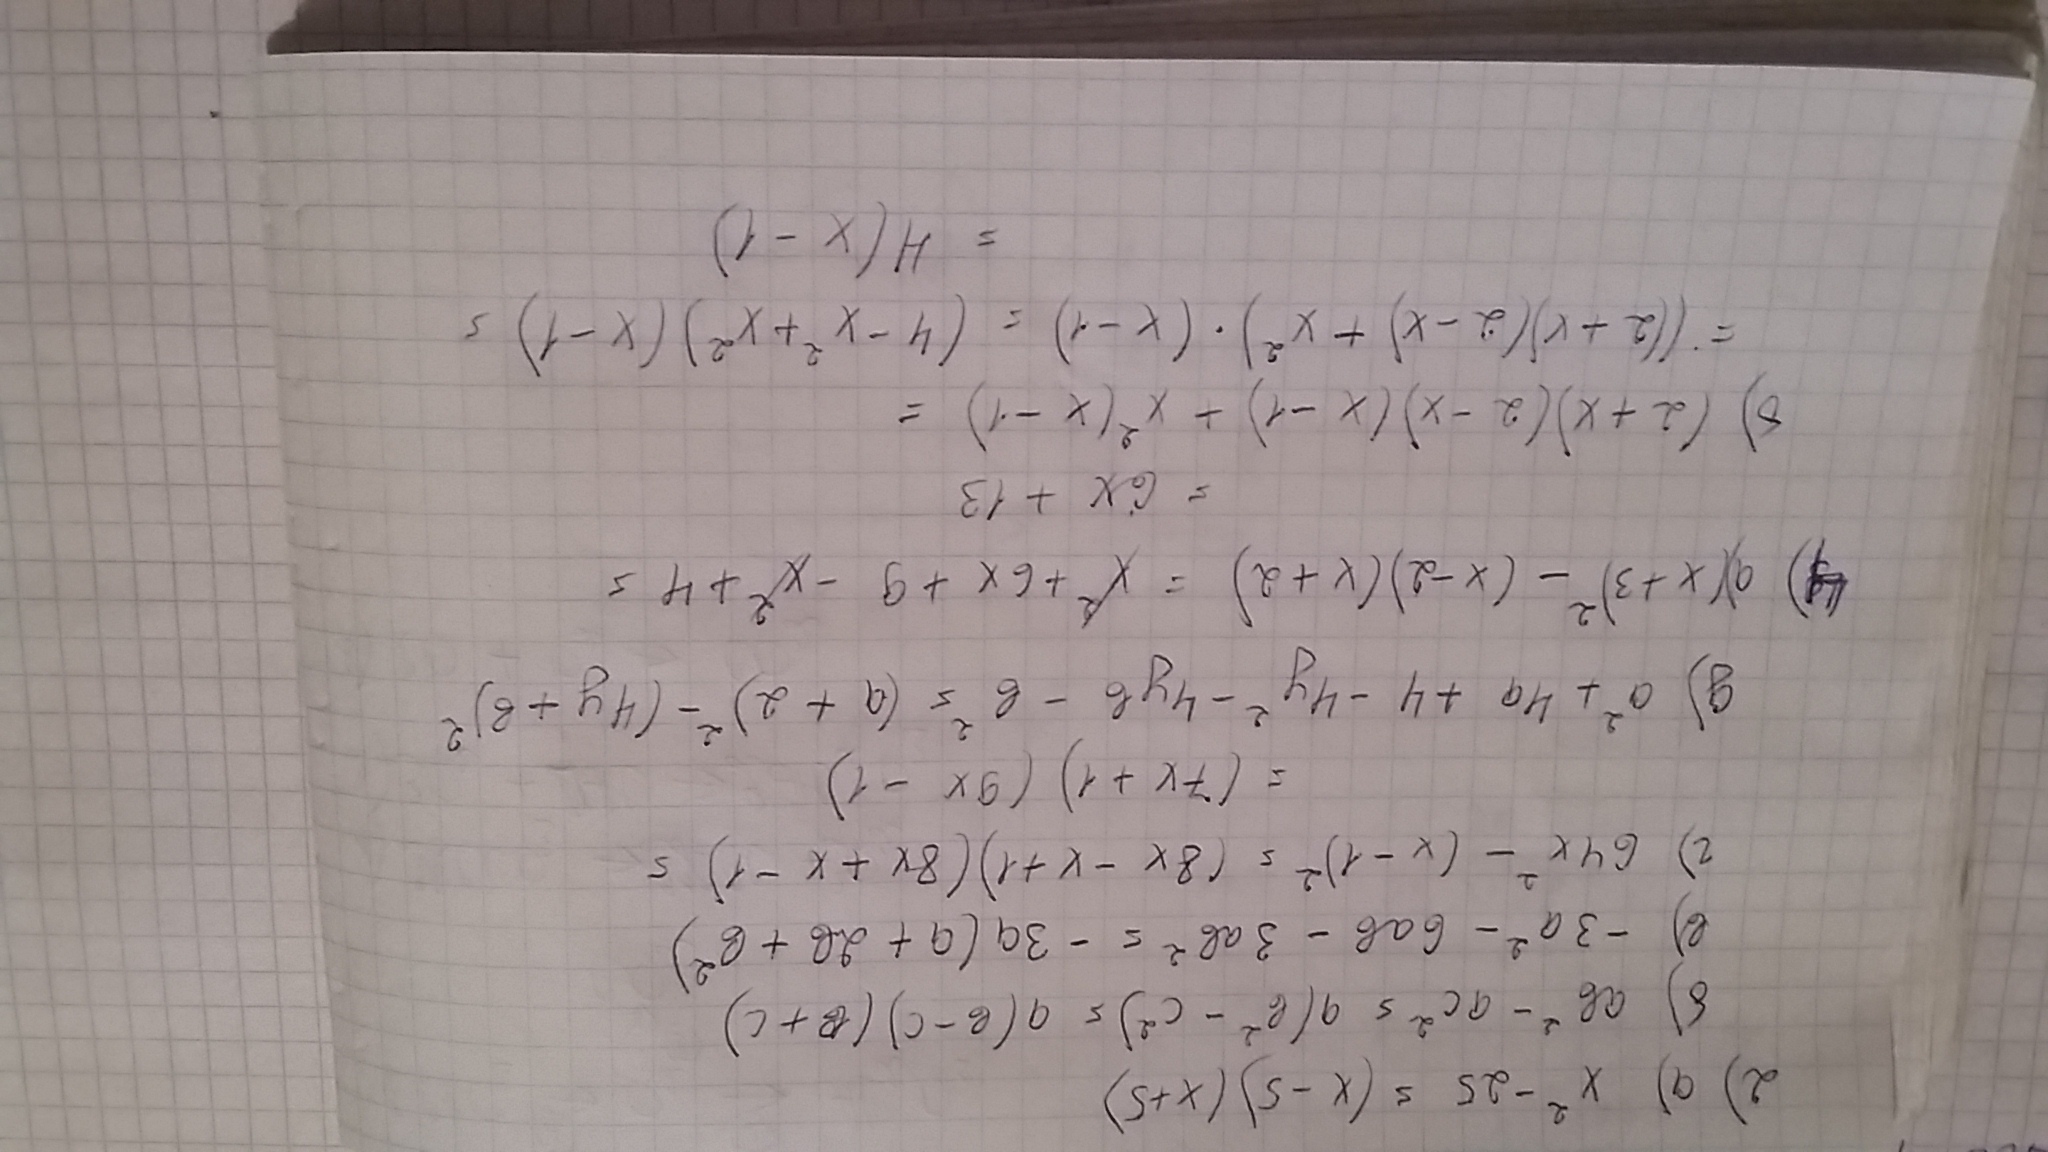 2) а) x² - 25 = (x - 5)(x+5)
б) ab² - ac² = a(b² - c²) = a(b-c)(b+c)
в) -3a² - 6ab - 3ab² = -3a(a + 2b + b²)
г) 64x² - (x-1)² = (8x - x+1)(8x + x -1) =
= (7x+1)(9x -1)
д) a² + 4a + 4 - 4y² - 4yb - b² = (a + 2)² - (4y + b)²
4) а)(x+3)² - (x-2)(x+2) = x² + 6x + 9 - x² + 4 =
= 6x + 13
б) (2+x)(2-x)(x-1) + x²(x-1) =
= ((2+x)(2-x) + x²)·(x-1) = (4 - x² + x²)(x-1) =
= 4(x-1)